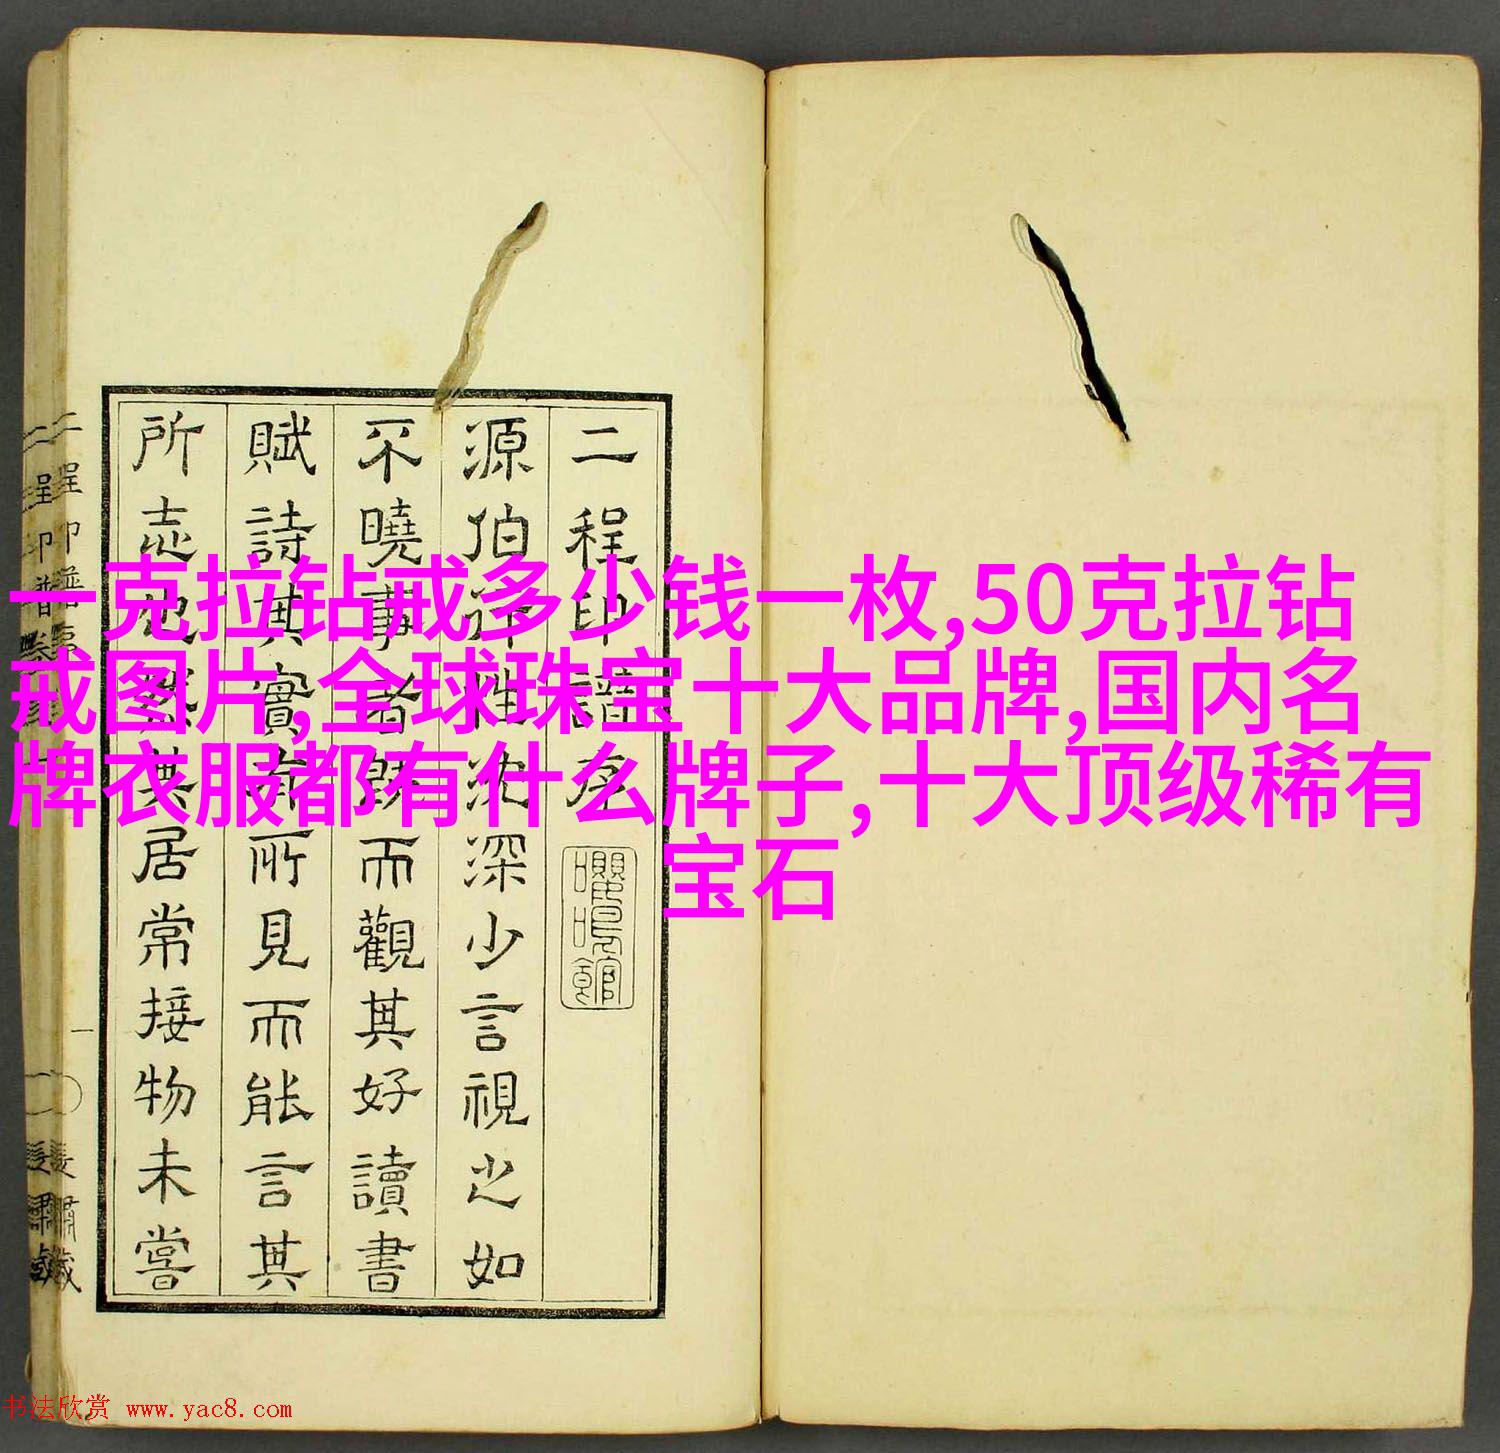 一克拉钻戒多少钱一枚,50克拉钻
戒图片,全球珠宝十大品牌,国内名
牌衣服都有什么牌子,十大顶级稀有
宝石
二程印譜序
嚶鳴館
源伯性沈深少言視之如
不曉事者既而觀其好讀書
賦詩其實有所見而能言其
所志也然其居常接物未嘗
二程印譜
一
书法欣赏 www.yac8.com